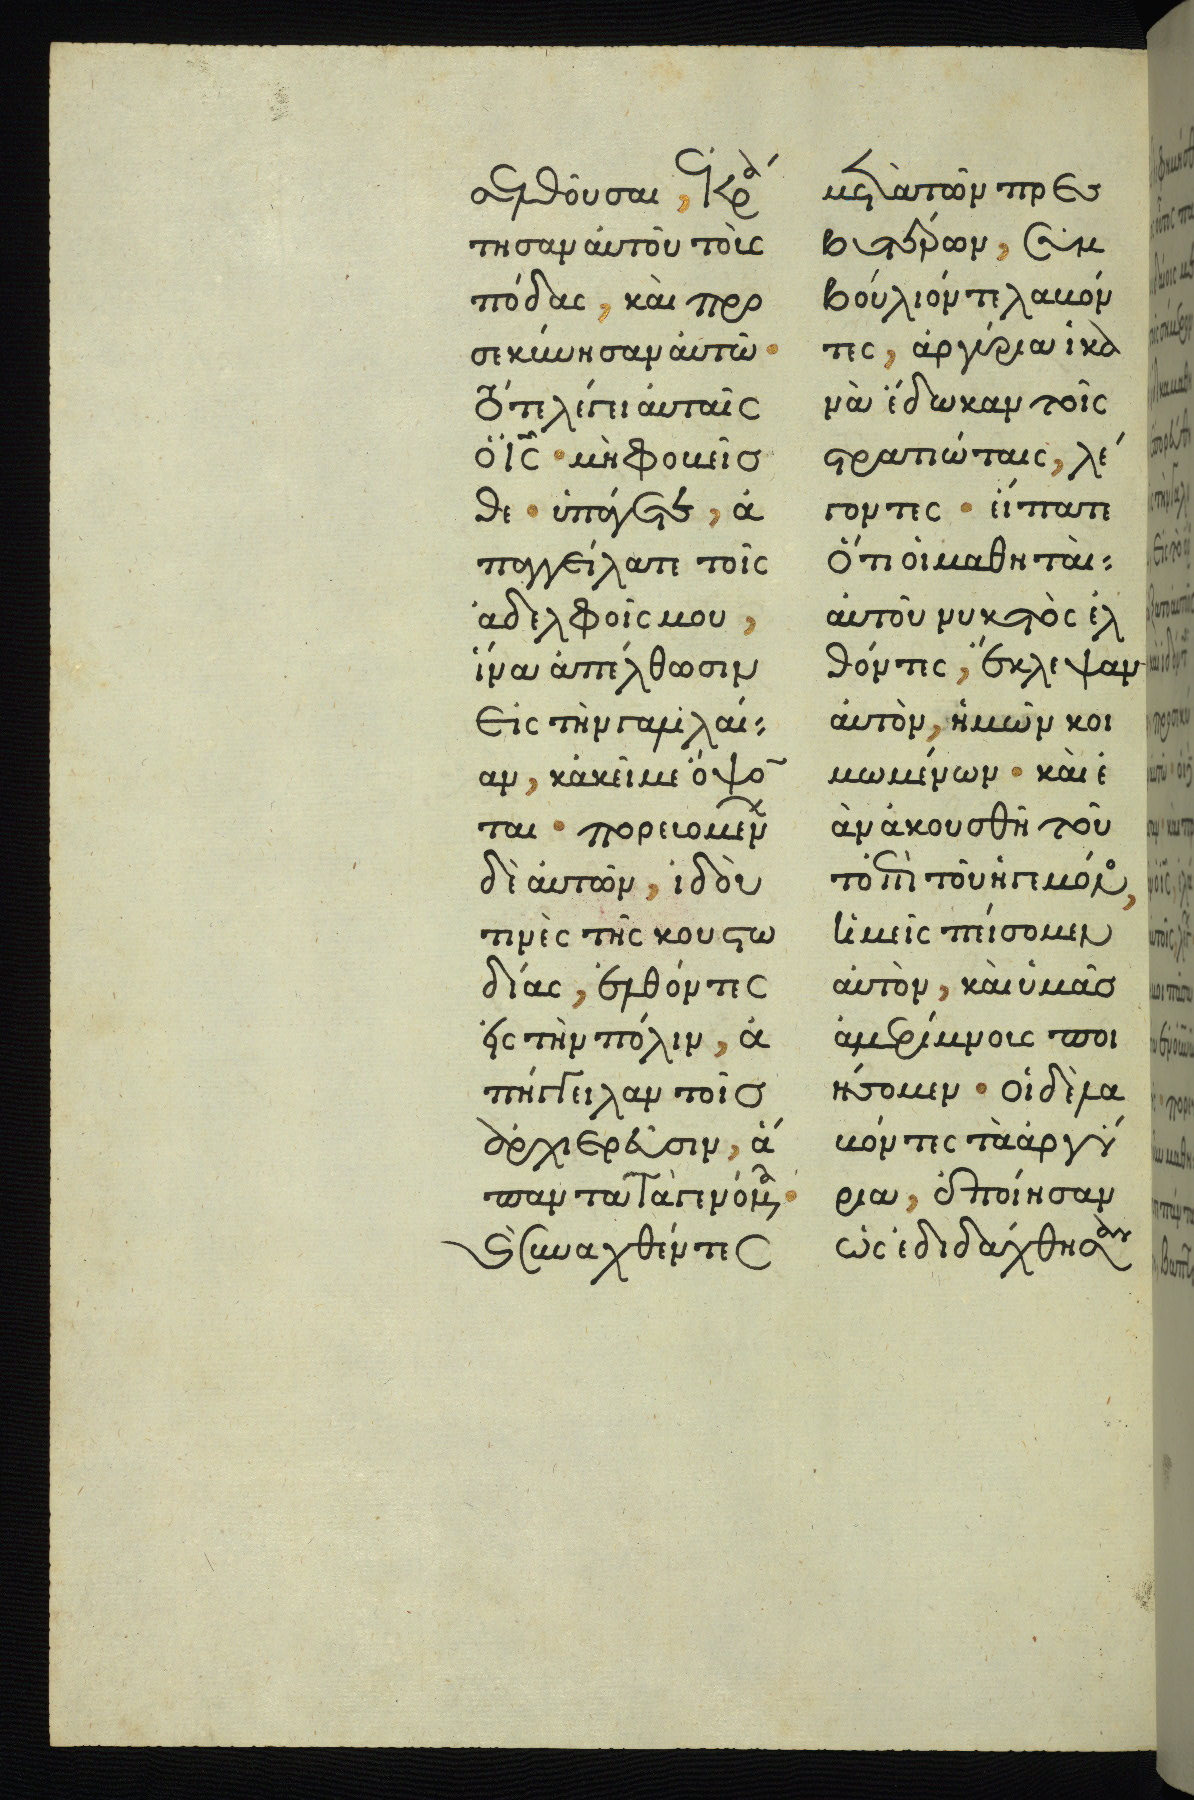 ελθοῦσαι, ἐκρά
τησαν ἀυτοῦ τοὺς
πόδας, καὶ προ
σεκύνησαν ἀυτῶ·
τότε λέγει ἀυταῖς
ὁ ἰς̅· μὴ φοβεῖσ
θε· ὑπάγετε, ἀ
παγγείλατε τοῖς
ἀδελφοῖς μου,
ἵνα ἀπέλθωσιν
εἰς τὴν γαλιλαί
αν, κἀκεῖ με ὄψο̅
ται· πορευομέν
δὲ ἀυτῶν, ἰδού
τινὲς τῆς κουστω
δίας, ἐλθόντες
εἰς τὴν πόλιν, ἀ
πήγγειλαν τοῖς
ἀρχιερεῦσιν, ἅ
παντα τὰ γενόμενα·
καὶ συναχθέντες
μετὰ τῶν πρεσ
βυτέρων, συμ
βούλιόν τε λαβόν
τες, ἀργύρια ἱκα
νὰ ἔδωκαν τοῖς
στρατιώταις, λέ
γοντες· εἴπατε
ὅτι οἱ μαθηταὶ
ἀυτοῦ νυκτὸς ἐλ
θόντες, ἔκλεψαν
ἀυτὸν, ἡμῶν κοι
μωμένων· καὶ ἐ
ὰν ἀκουσθῆ τοῦ
το ἐπὶ τοῦ ἡγεμόνος,
ἡμεῖς πείσομεν
ἀυτὸν, καὶ ὑμᾶς
ἀμερίμνους ποι
ήσομεν· οἱ δὲ λα
βόντες τὰ ἀργύ
ρια, ἐποίησαν
ὡς ἐδιδάχθησαν